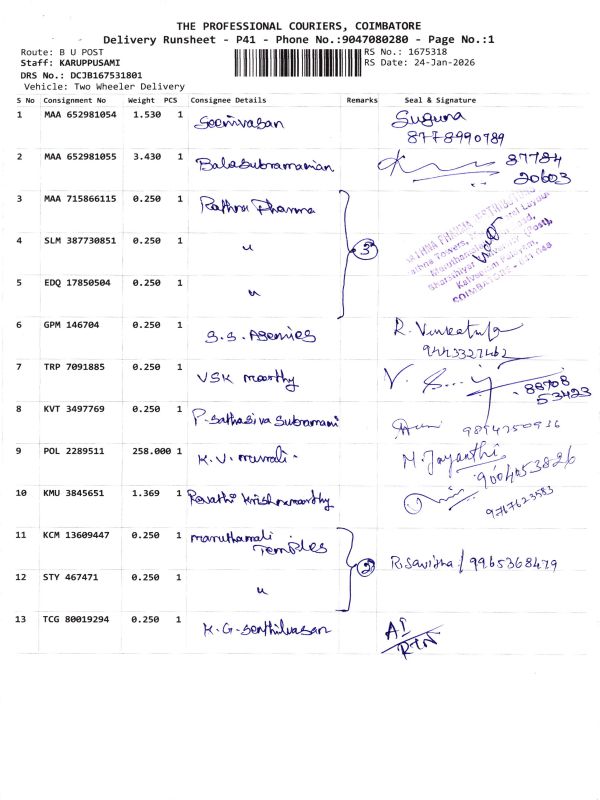 THE PROFESSIONAL COURIERS, COIMBATORE
Delivery Runsheet - P41 - Phone No.:9047080280 - Page No.:1
Route: B U POST RS No.: 1675318
Staff: KARUPPUSAMI RS Date: 24-Jan-2026
DRS No.: DCJB167531801
Vehicle: Two Wheeler Delivery
S No Consignment No Weight PCS Consignee Details Remarks Seal & Signature
1 MAA 652981054 1.530 1 Seenivasan Suguna
8778990789
2 MAA 652981055 3.430 1 Balasubramanian 87784
20603
3 MAA 715866115 0.250 1 Rathna Pharma
4 SLM 387730851 0.250 1 " 3
5 EDQ 17850504 0.250 1 "
6 GPM 146704 0.250 1 S.S. Agencies R.
9443327462
7 TRP 7091885 0.250 1 VSK moorthy V.
88708
53423
8 KVT 3497769 0.250 1 P. Sathasiva Subramani
9894750936
9 POL 2289511 258.000 1 K.V. murali M. Jayanthi
9004653826
10 KMU 3845651 1.369 1 Revathi Krishnamoorthy
9767623583
11 KCM 13609447 0.250 1 maruthamali
Temples
2 R. Savitha / 9965368479
12 STY 467471 0.250 1 "
13 TCG 80019294 0.250 1 K.G. Senthilvasan
RTN